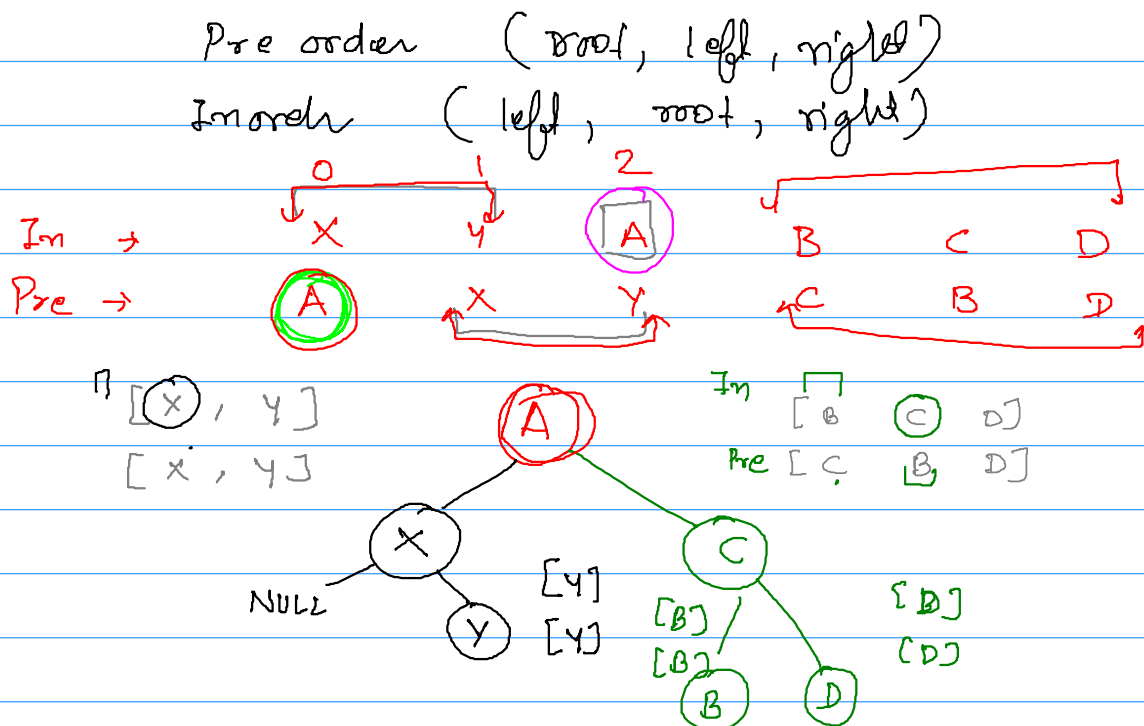 Pre order (root, left, right)
Inorder (left, root, right)
0 1 2
In → X Y A B C D
Pre → A X Y C B D
In
[X, Y] A [B C D]
[X, Y] Pre [C B D]
X C
NULL [Y] [B] [D]
Y [Y] [B] [D]
B D